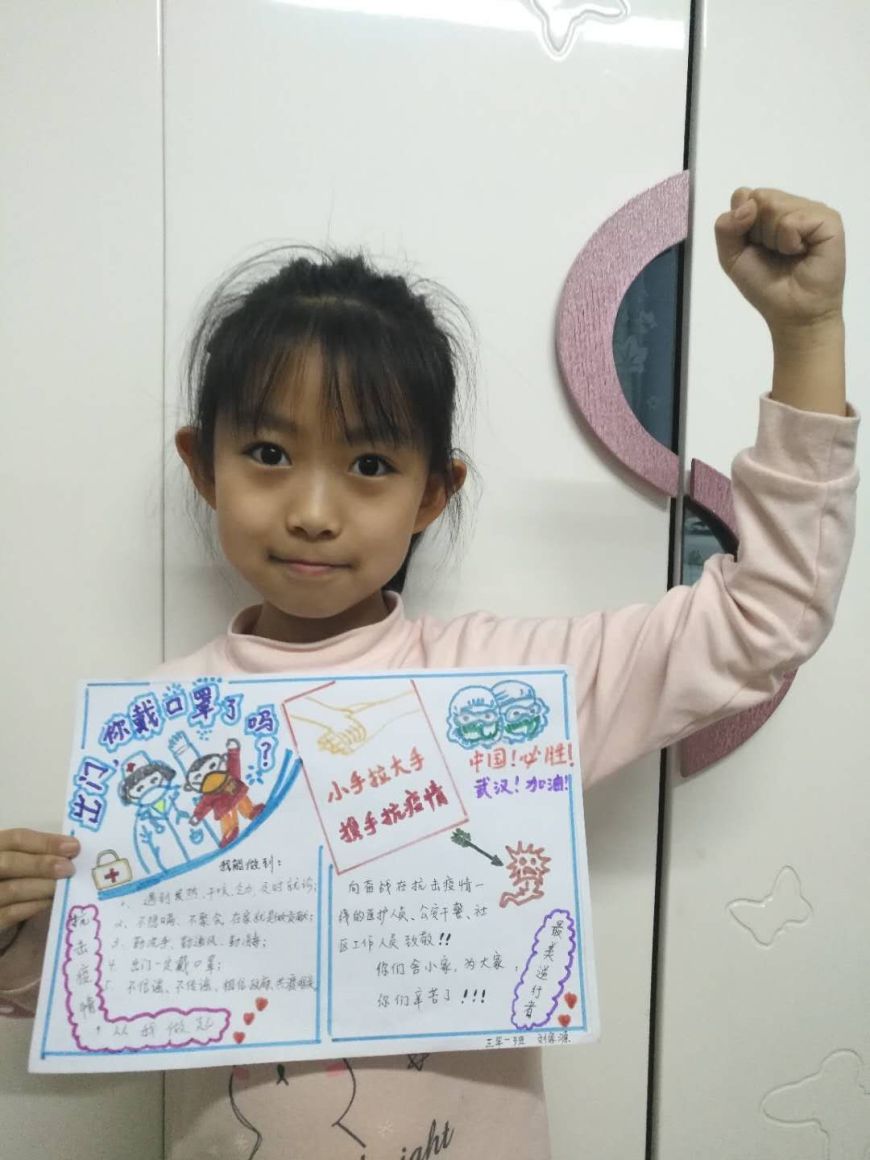 出门,你戴口罩了吗?
小手拉大手
携手抗疫情
中国!必胜!
武汉!加油!
我能做到:
1、遇到发热、干咳、乏力,及时就诊;
2、不隐瞒、不聚会,在家就是做贡献;
3、勤洗手、勤通风、勤消毒;
4、出门一定戴口罩;
5、不信谣、不传谣、相信政府,共渡难关
抗击疫情
从我做起
向奋战在抗击疫情一
线的医护人员、公安干警、社
区工作人员致敬!!
你们舍小家,为大家,
你们辛苦了!!!
最美逆行者
三年一班